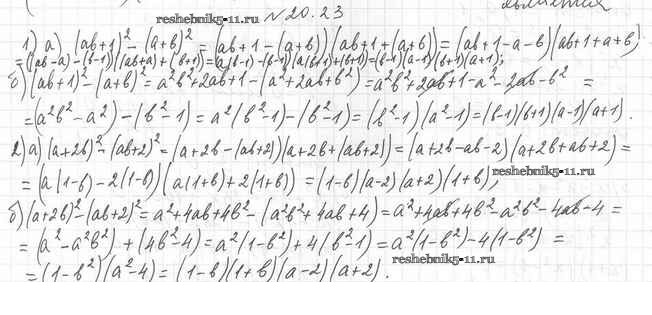 является
reshebnik5-11.ru
№20.23
1) а) (ab+1)² - (a+b)² = (ab+1-(a+b))(ab+1+(a+b)) = (ab+1-a-b)(ab+1+a+b)
= ((ab-a)-(b-1))((ab+a)+(b+1)) = (a(b-1)-(b-1))(a(b+1)+(b+1)) = (b-1)(a-1)(b+1)(a+1);
б) (ab+1)² - (a+b)² = a²b²+2ab+1-(a²+2ab+b²) = a²b²+2ab+1-a²-2ab-b² =
= (a²b²-a²)-(b²-1) = a²(b²-1)-(b²-1) = (b²-1)(a²-1) = (b-1)(b+1)(a-1)(a+1).
2) а) (a+2b)² - (ab+2)² = (a+2b-(ab+2))(a+2b+(ab+2)) = (a+2b-ab-2)(a+2b+ab+2) =
reshebnik5-11.ru
= (a(1-b)-2(1-b))(a(1+b)+2(1+b)) = (1-b)(a-2)(a+2)(1+b);
б) (a+2b)² - (ab+2)² = a²+4ab+4b²-(a²b²+4ab+4) = a²+4ab+4b²-a²b²-4ab-4 =
= (a²-a²b²)+(4b²-4) = a²(1-b²)+4(b²-1) = a²(1-b²)-4(1-b²) =
reshebnik5-11.ru
= (1-b²)(a²-4) = (1-b)(1+b)(a-2)(a+2).